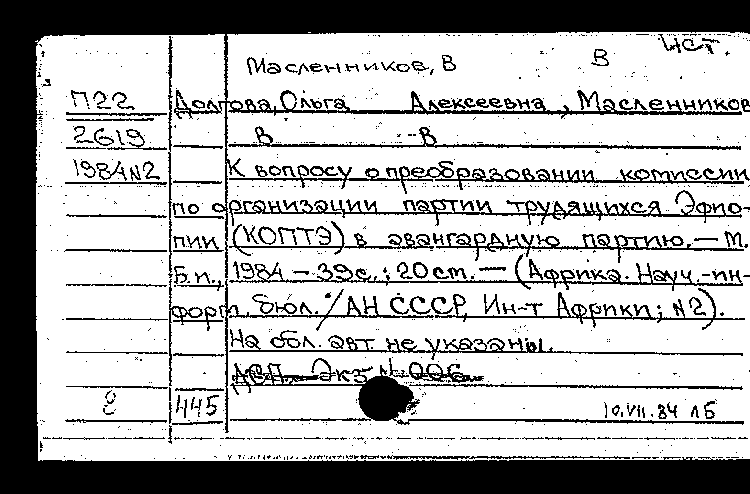 Ист.
Масленников, В В
П22 Долгова, Ольга Алексеевна, Масленников
2619 В В
1984 N2 К вопросу о преобразовании комиссии
по организации партии трудящихся Эфио-
пии (КОПТЭ) в авангардную партию. — М.
Б.п., 1984 — 39с.; 20 ст. — (Африка. Науч.-ин-
форм. бюл. / АН СССР, Ин-т Африки; N2).
На обл. авт. не указаны.
ДСП. Экз N 006
2 445 10.VII.84 ЛБ